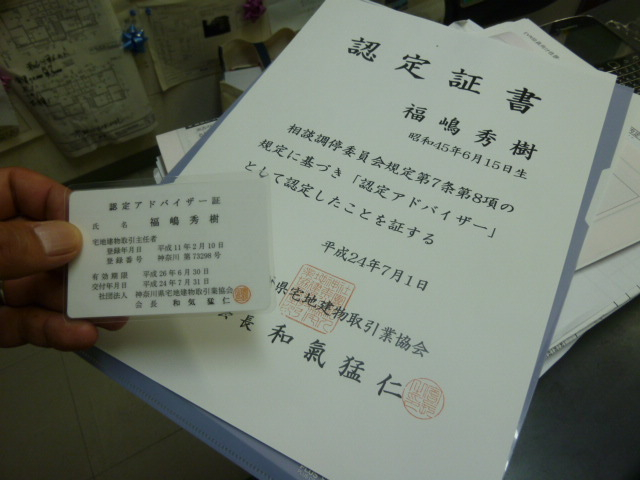 認定証書
福嶋秀樹
昭和45年6月15日生
相談調停委員会規定第7条第8項の
規定に基づき「認定アドバイザー」
として認定したことを証する
平成24年7月1日
県宅地建物取引業協会
長 和氣猛仁
認定アドバイザー証
氏名 福嶋秀樹
宅地建物取引主任者
登録年月日 平成11年2月10日
登録番号 神奈川 第73298号
有効期限 平成26年6月30日
交付年月日 平成24年7月31日
社団法人 神奈川県宅地建物取引業協会
会長 和気猛仁